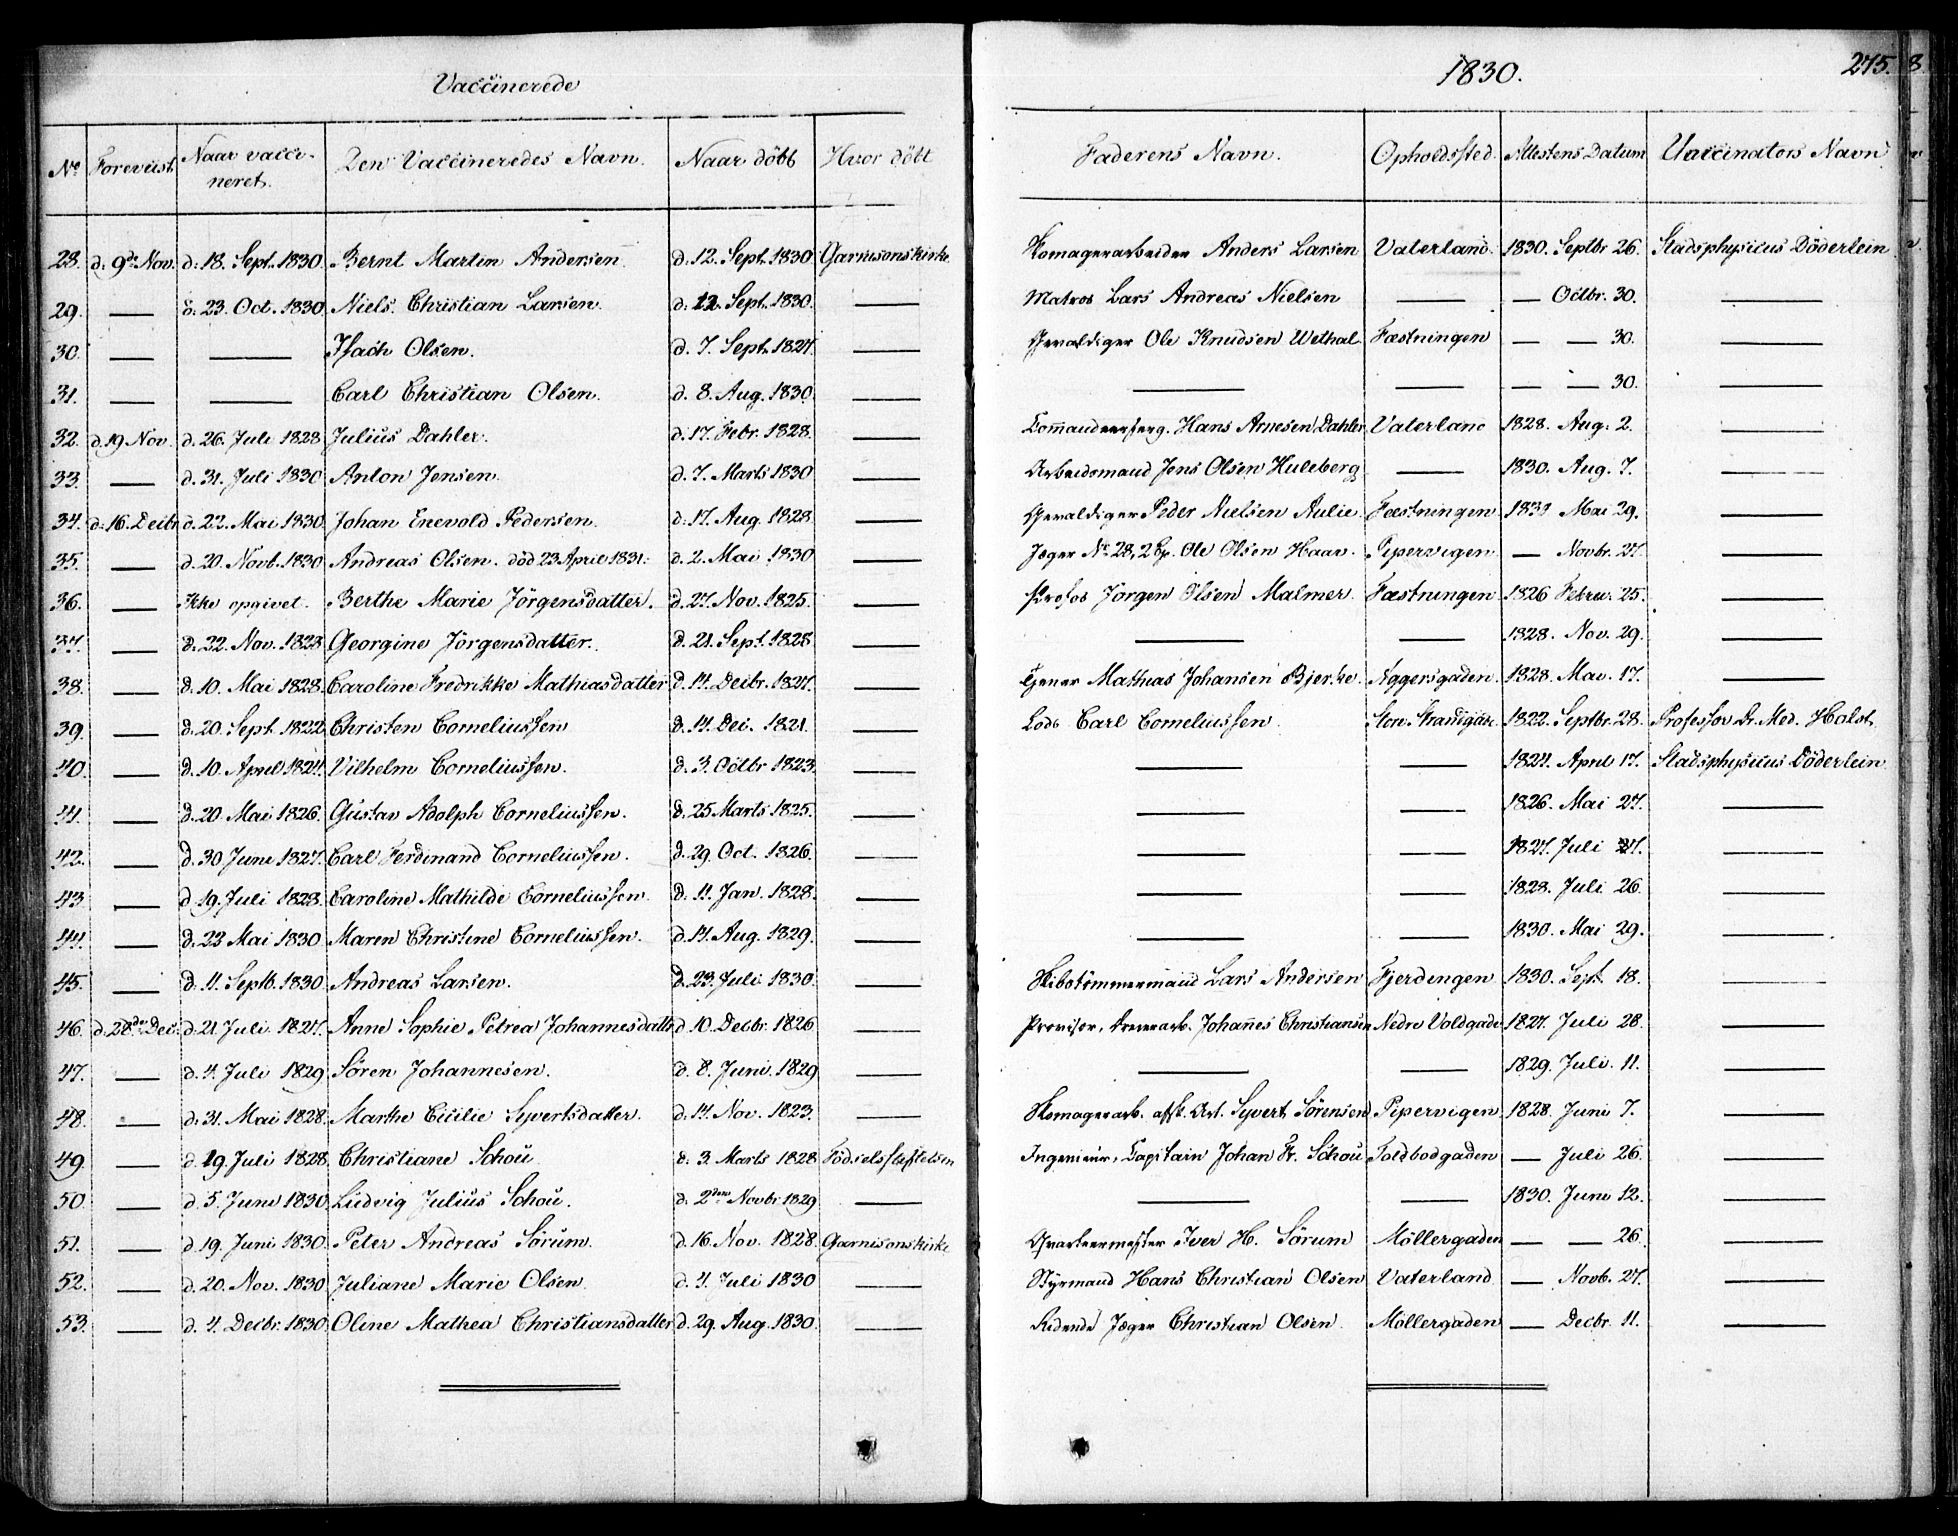 Vaccinerede
1830.
275.
No Foreviist Naar vacci- Den Vaccineredes Navn. Naar döbt Hvor döbt Faderens Navn. Opholdssted Attestens Datum Vaccinators Navn
neret.
28. d. 9de Nov. d. 18. Sept. 1830 Bernt Martin Andersen. d. 12. Sept. 1830 Garnisonskirke Komagerarbeider Anders Larsen Vaterland. 1830. Septbr 26. Stadsphysicus Döderlein
29. — d. 23. Oct. 1830 Niels Christian Larsen. d. 12. Sept. 1830. — Matros Lars Andreas Nielsen — — Octbr. 30. —
30. — — Isach Olsen. d. 7. Sept. 1827. — Gevaldiger Ole Knudsen Wethal. Fæstningen — — 30. —
31. — — Carl Christian Olsen. d. 8. Aug. 1830. — — — — — 30. —
32. d. 19 Nov. d. 26. Juli 1828 Julius Dahler. d. 17. Febr. 1828. — Commandeerserg. Hans Arnesen Dahler Vaterland 1828. Aug. 2. —
33. — d. 31. Juli 1830 Anton Jensen. d. 7. Marts 1830 — Arbeidsmand Jens Olsen Huleberg — 1830. Aug. 7. —
34. d. 16. Decbr d. 22. Mai 1830. Johan Enevold Pedersen. d. 17. Aug. 1828. — Gevaldiger Peder Nielsen Aulie. Fæstningen 1830 Mai 29. —
35. — d. 20. Novb. 1830 Andreas Olsen. död 23 April 1831. d. 2. Mai 1830 — Jæger No 28, 2 Cp. Ole Olsen Haav. Pipervigen. — Novbr. 27. —
36. — Ikke opgivet. Berthe Marie Jörgensdatter. d. 27. Nov. 1825. — Profos Jörgen Olsen Malmer. Fæstningen 1826 Febru. 25. —
37. — d. 22. Nov. 1828 Georgine Jörgensdatter. d. 21. Sept. 1828 — — — 1828. Nov. 29. —
38. — d. 10. Mai 1828. Caroline Fredrikke Mathiasdatter d. 14. Decbr. 1827. — Tjener Mathias Johansen Bjerke. Aggersgaden. 1828. Mai. 17. —
39. — d. 20. Sept. 1822 Christen Corneliussen d. 14. Dec. 1821. — Lods Carl Corneliussen. Store Strandgade. 1822. Septbr. 28. Professor Dr. Med. Holst.
40. — d. 10. April 1824. Vilhelm Corneliussen. d. 3. Octbr 1823. — — — 1824. April 17. Stadsphysicus Döderlein
41. — d. 20. Mai 1826. Gustav Adolph Corneliussen. d. 25 Marts 1825. — — — 1826. Mai 27. —
42. — d. 30 Juni 1827. Carl Ferdinand Corneliussen. d. 29. Oct. 1826. — — — 1827. Juli 27. —
43. — d 19. Juli 1828. Caroline Mathilde Corneliussen. d. 11. Jan. 1828. — — — 1828. Juli 26. —
44. — d. 22 Mai 1830. Maren Christine Corneliussen. d. 14. Aug. 1829. — — — 1830. Mai 29. —
45. — d. 11. Septb. 1830. Andreas Larsen. d. 23. Juli 1830. — Skibstömmermand Lars Andersen Fjerdingen 1830. Sept. 18. —
46. d. 28de Dec. d. 21. Juli 1827. Anne Sophie Petrea Johannesdattr d. 10. Decbr. 1826 — Provisor. Johannes Christiansen Nedre Voldgade 1827. Juli 28. —
47. — d. 4. Juli 1829 Sören Johannesen. d. 8. Juni. 1829 — — — 1829. Juli. 11. —
48. — d. 31. Mai 1828. Marthe Cicilie Syvertsdatter. d. 14. Nov. 1823. — Komagerarb. afsk. Art. Syvert Sörensen Pipervigen. 1828. Juni 7. —
49. — d. 19. Juli 1828. Christiane Schou d. 3. Marts 1828 Födselsstiftelsen Ingenieur, Capitain Johan Fr. Schou Toldbodgaden — Juli 26. —
50. — d. 5. Juni 1830. Ludvig Julius Schou. d. 2den Novbr 1829 — — — 1830. Juni 12. —
51. — d. 19. Juni 1830. Peter Andreas Sörum. d. 16. Nov. 1828. Garnisonskirke Qvarteermester Iver H. Sörum Möllergaden — — 26. —
52. — d. 20. Nov. 1830. Juliane Marie Olsen. d. 4. Juli 1830 — Styrmand Hans Christian Olsen Vaterland — Novb. 27. —
53. — d. 4. Decbr. 1830. Oline Mathea Christiansdatter d. 29. Aug. 1830. — Ridende Jæger Christian Olsen. Möllergaden — Decbr. 11. —